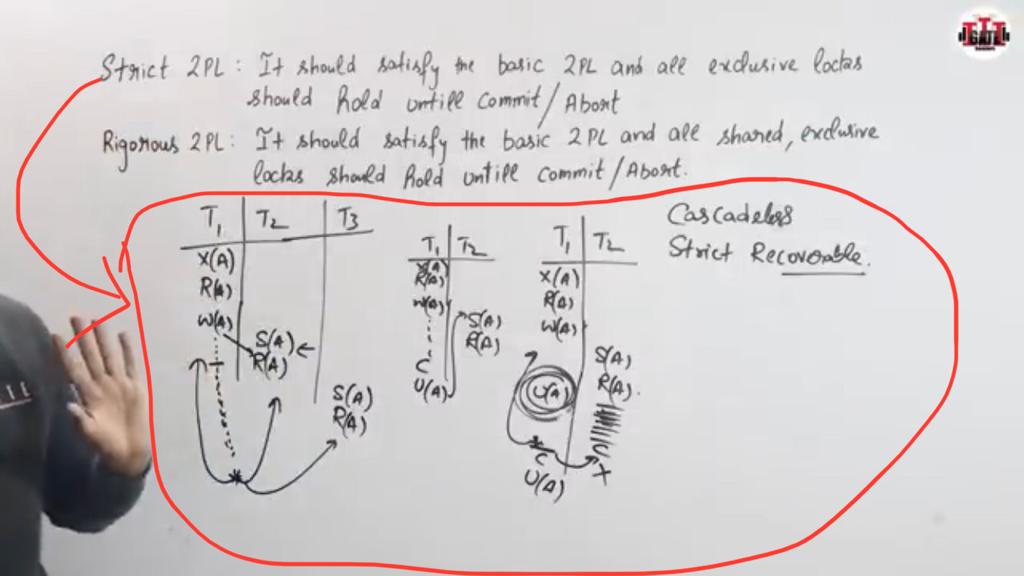 Strict 2PL: It should satisfy the basic 2PL and all exclusive locks
should hold untill Commit/Abort
Rigorous 2PL: It should satisfy the basic 2PL and all shared, exclusive
locks should hold untill commit/Abort.
T1 T2 T3
X(A)
R(A)
W(A)
S(A)
R(A)
S(A)
R(A)
T1 T2
R(A)
W(A)
S(A)
R(A)
C
U(A)
T1 T2
X(A)
R(A)
W(A)
S(A)
R(A)
U(A)
C
C
U(A)
Cascadeless
Strict Recoverable.
GATE